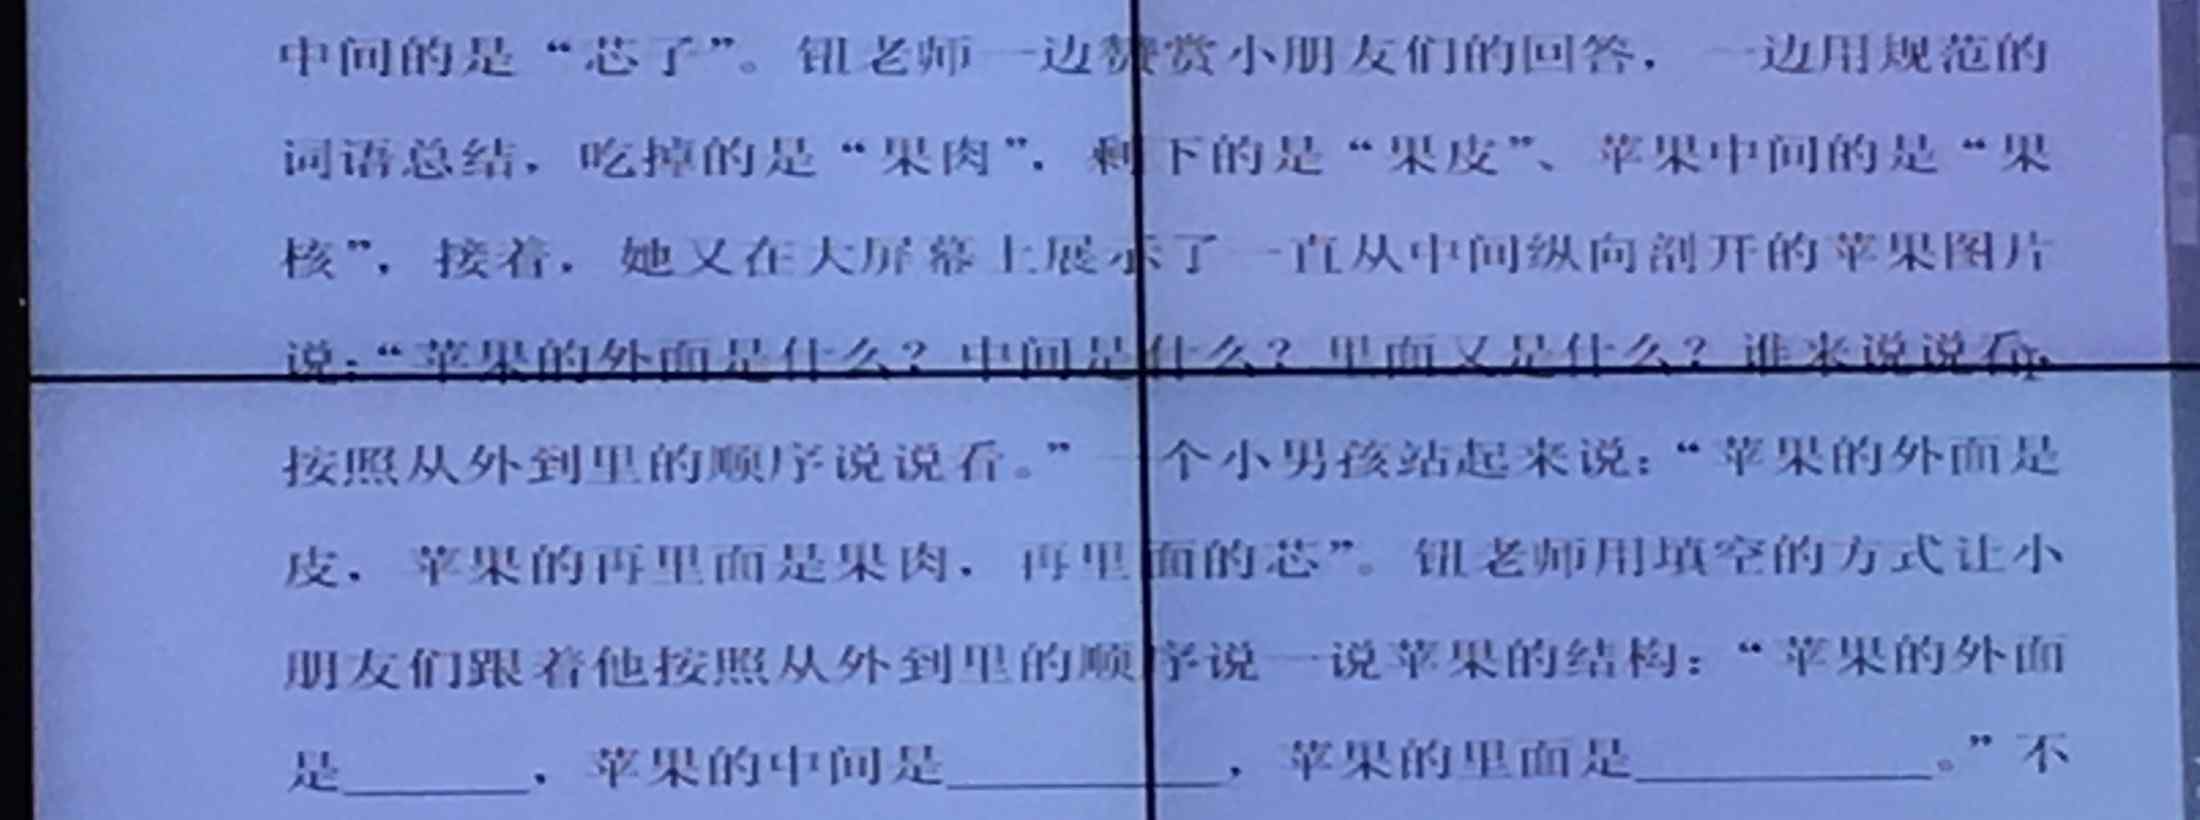 中间的是“芯子”。钮老师一边赞赏小朋友们的回答，一边用规范的
词语总结，吃掉的是“果肉”，剩下的是“果皮”、苹果中间的是“果
核”，接着，她又在大屏幕上展示了一直从中间纵向剖开的苹果图片
说：“苹果的外面是什么？中间是什么？里面又是什么？谁来说说看，
按照从外到里的顺序说说看。”一个小男孩站起来说：“苹果的外面是
皮，苹果的再里面是果肉，再里面的芯”。钮老师用填空的方式让小
朋友们跟着他按照从外到里的顺序说一说苹果的结构：“苹果的外面
是______，苹果的中间是________，苹果的里面是_________。”不